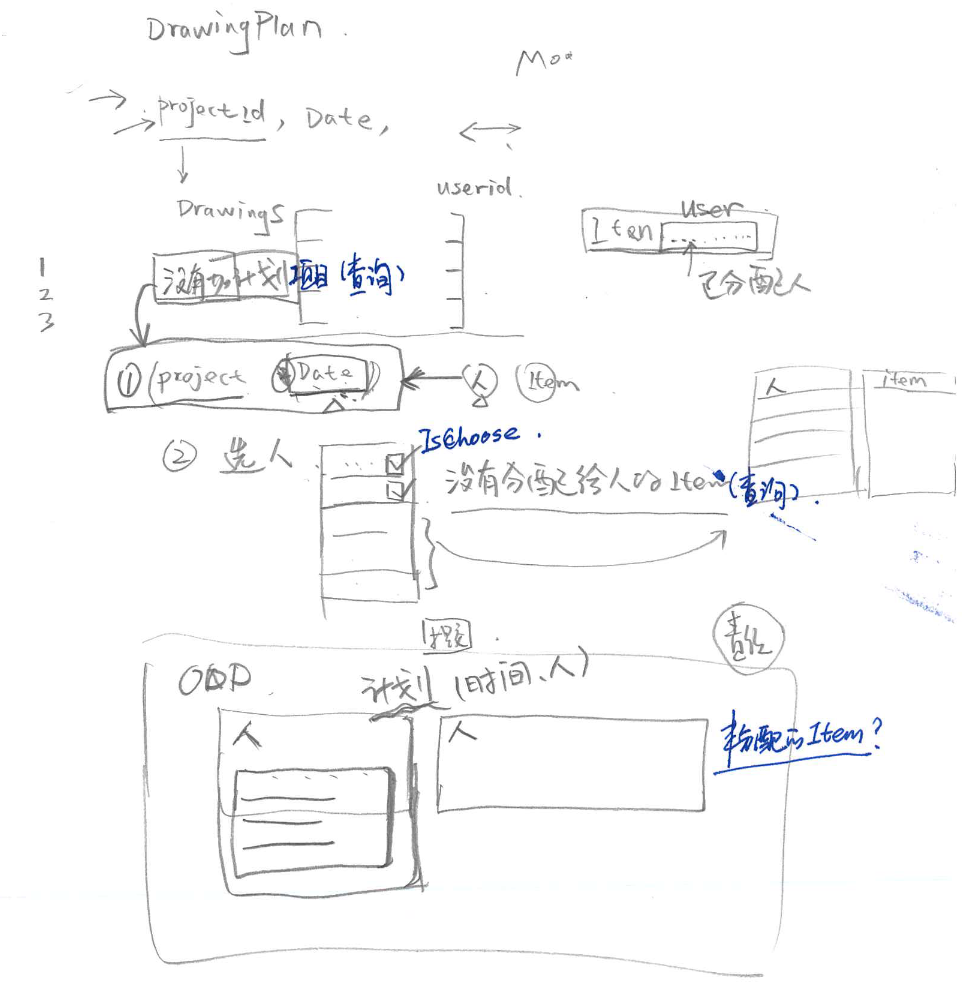 DrawingPlan.
projectId, Date,
userid.
Drawings
user
Iten
已分配人
1
2
3
没有加计划项目(查询)
① (project Date)
人 Item
人 item
② 选人
IsChoose.
没有分配给人的Item(查询).
计划(时间、人)
人
人
未分配的Item?